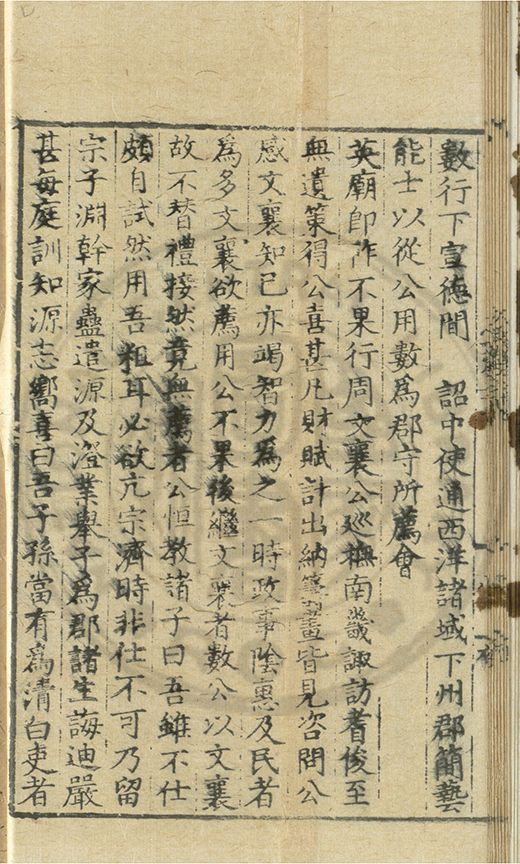 數行下宣德間　詔中使通西洋諸域下州郡簡藝
能士以從公用數為郡守所薦會
英廟即阼不果行周文襄公巡撫南畿諏訪耆俊至
無遺策得公喜甚凡財賦計出納籌畫皆見咨問公
感文襄知己亦竭智力為之一時政事陰惠及民者
為多文襄欲薦用公不果後繼文襄者數公以文襄
故不替禮接然竟無薦者公恒教諸子曰吾雖不仕
頗自試然用吾粗耳必欲亢宗濟時非仕不可乃留
宗子淵幹家蠱遣源及澄業舉子為郡諸生誨迪嚴
甚每庭訓知源志嚮喜曰吾子孫當有為清白吏者